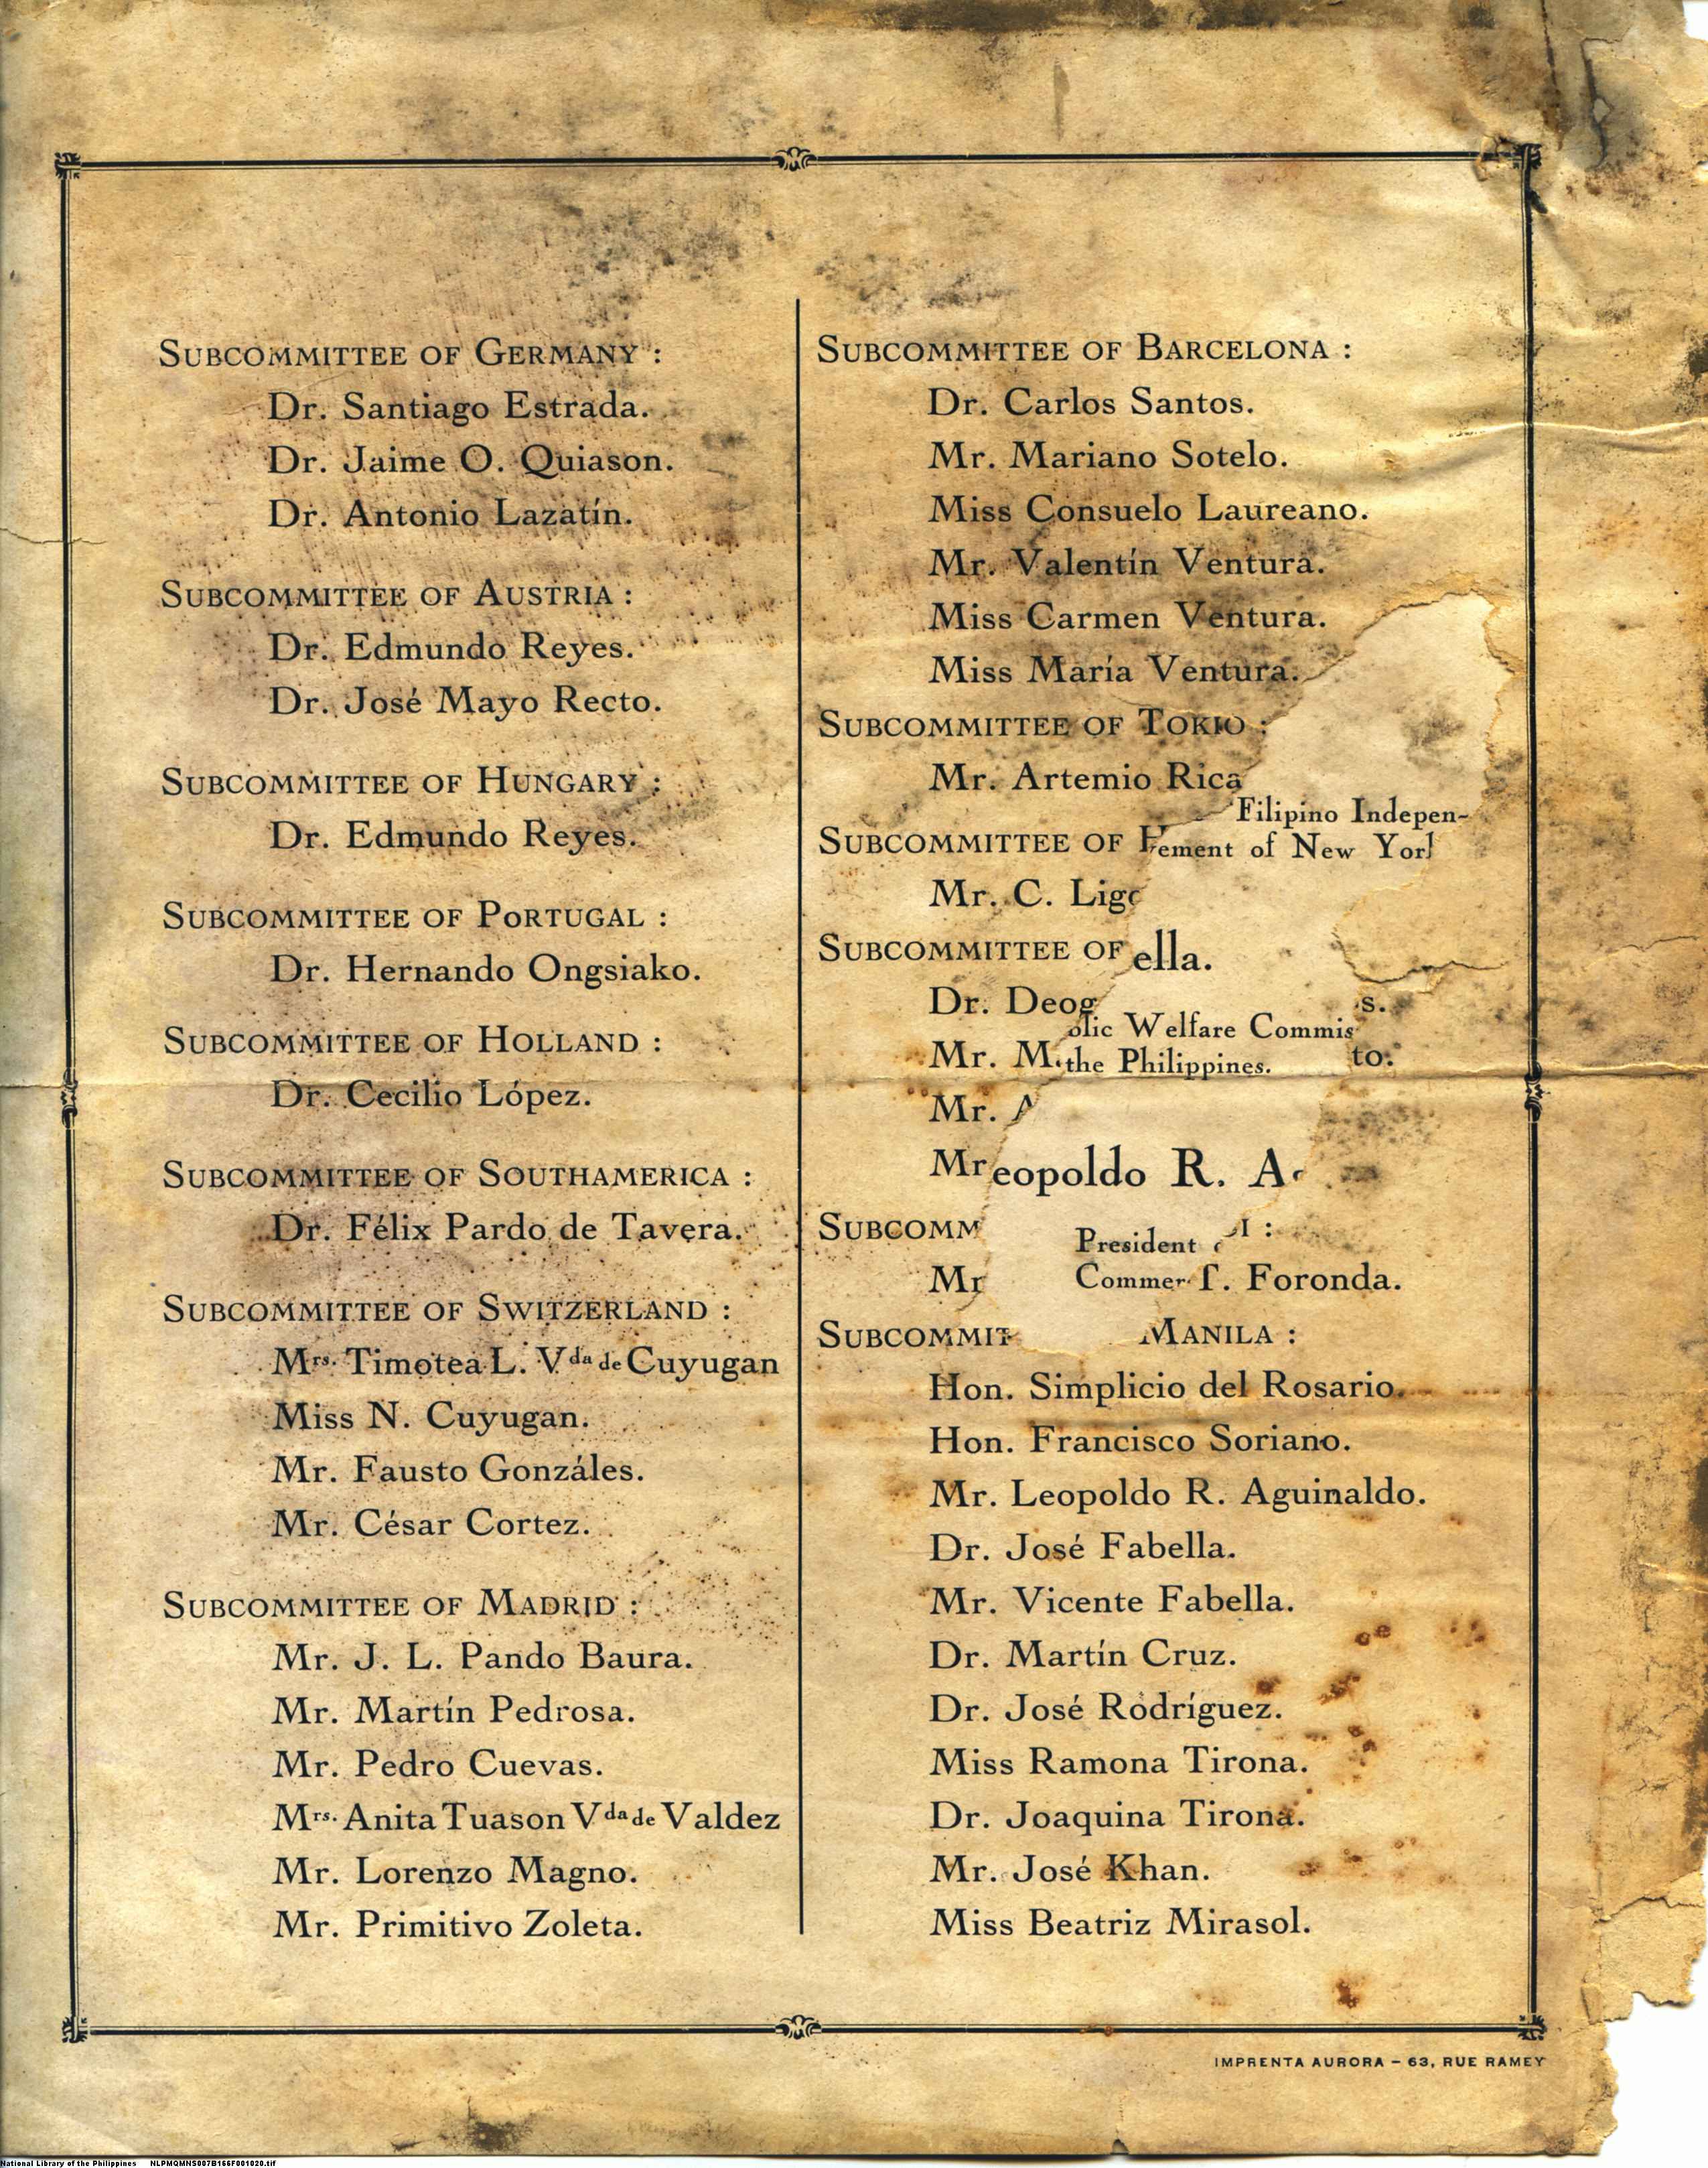 SUBCOMMITTEE OF GERMANY :
Dr. Santiago Estrada.
Dr. Jaime O. Quiason.
Dr. Antonio Lazatín.
SUBCOMMITTEE OF AUSTRIA :
Dr. Edmundo Reyes.
Dr. José Mayo Recto.
SUBCOMMITTEE OF HUNGARY :
Dr. Edmundo Reyes.
SUBCOMMITTEE OF PORTUGAL :
Dr. Hernando Ongsiako.
SUBCOMMITTEE OF HOLLAND :
Dr. Cecilio López.
SUBCOMMITTEE OF SOUTHAMERICA :
Dr. Félix Pardo de Tavera.
SUBCOMMITTEE OF SWITZERLAND :
Mrs. Timotea L. Vda de Cuyugan
Miss N. Cuyugan.
Mr. Fausto Gonzáles.
Mr. César Cortez.
SUBCOMMITTEE OF MADRID :
Mr. J. L. Pando Baura.
Mr. Martín Pedrosa.
Mr. Pedro Cuevas.
Mrs. Anita Tuason Vda de Valdez
Mr. Lorenzo Magno.
Mr. Primitivo Zoleta.
SUBCOMMITTEE OF BARCELONA :
Dr. Carlos Santos.
Mr. Mariano Sotelo.
Miss Consuelo Laureano.
Mr. Valentín Ventura.
Miss Carmen Ventura.
Miss María Ventura.
SUBCOMMITTEE OF TOKIO :
Mr. Artemio Rica
Filipino Indepen-
SUBCOMMITTEE OF ement of New Yor
Mr. C. Lig
SUBCOMMITTEE OF ella.
Dr. Deog s.
lic Welfare Commis
Mr. M the Philippines. to.
Mr. A
Mr eopoldo R. A
SUBCOMM I :
President
Mr Commer T. Foronda.
SUBCOMMIT MANILA :
Hon. Simplicio del Rosario.
Hon. Francisco Soriano.
Mr. Leopoldo R. Aguinaldo.
Dr. José Fabella.
Mr. Vicente Fabella.
Dr. Martín Cruz.
Dr. José Rodríguez.
Miss Ramona Tirona.
Dr. Joaquina Tirona.
Mr. José Khan.
Miss Beatriz Mirasol.
IMPRENTA AURORA – 63, RUE RAMEY
National Library of the Philippines NLPMQMNS007B166F001020.tif